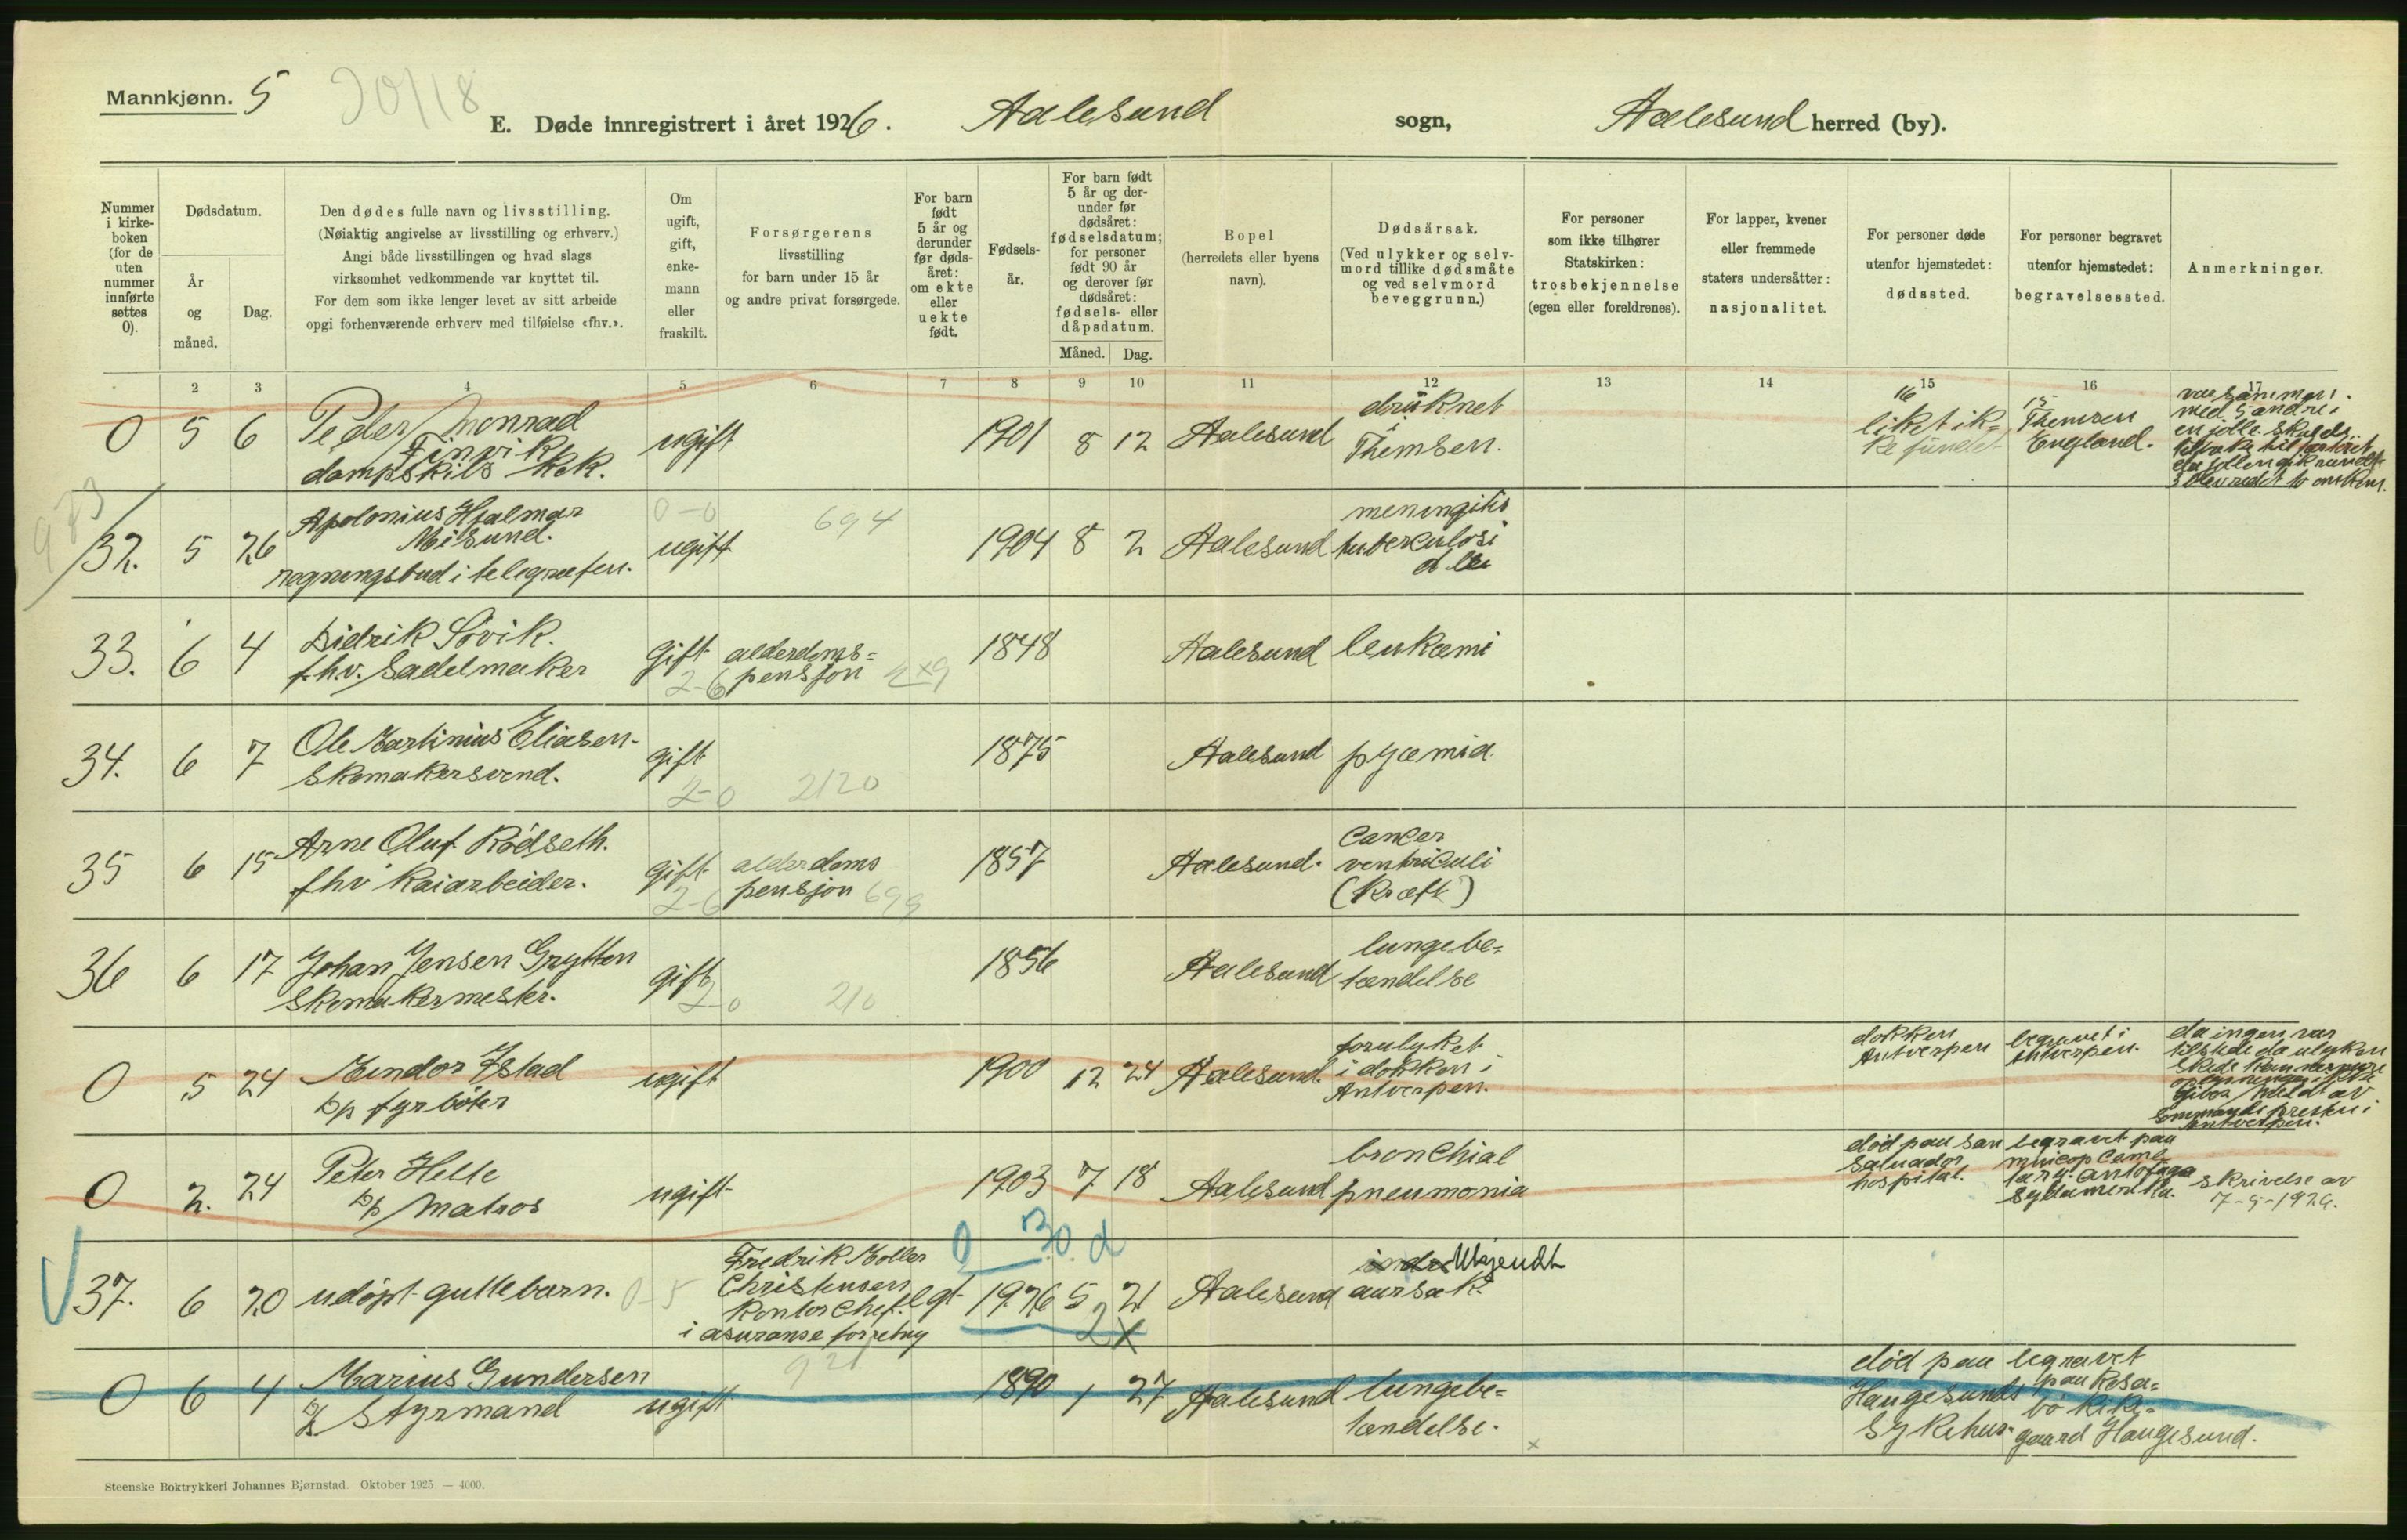 Mannkjønn. 5
20/18
E. Døde innregistrert i året 1926. Aalesund sogn, Aalesund herred (by).
Nummer i kirkeboken (for de uten nummer innførte settes 0).
Dødsdatum.
År og måned.
Dag.
Den dødes fulle navn og livsstilling.
(Nøiaktig angivelse av livsstilling og erhverv.)
Angi både livsstillingen og hvad slags
virksomhet vedkommende var knyttet til.
For dem som ikke lenger levet av sitt arbeide
opgi forhenværende erhverv med tilføielse «fhv.».
Om ugift, gift, enkemann eller fraskilt.
Forsørgerens
livsstilling
for barn under 15 år
og andre privat forsørgede.
For barn født 5 år og derunder før dødsåret: om ekte eller uekte født.
Fødselsår.
For barn født 5 år og derunder før dødsåret: fødselsdatum; for personer født 90 år og derover før dødsåret: fødsels- eller dåpsdatum.
Måned. Dag.
Bopel
(herredets eller byens
navn).
Dødsårsak.
(Ved ulykker og selvmord tillike dødsmåte og ved selvmord beveggrunn.)
For personer
som ikke tilhører
Statskirken:
trosbekjennelse
(egen eller foreldrenes).
For lapper, kvener
eller fremmede
staters undersåtter:
nasjonalitet.
For personer døde
utenfor hjemstedet:
dødssted.
For personer begravet
utenfor hjemstedet:
begravelsessted.
Anmerkninger.
2 3 4 5 6 7 8 9 10 11 12 13 14 15 16 17
0 5 6 Peder Monrad Finvik dampskibs kok. ugift 1901 8 12 Aalesund druknet i Themsen. 16 liket ikke fundet 15 Themsen England. var sammen med 5 andre i en jolle. Skulde tilbake til
983
32. 5 26 Apolonius Hjalmar Misund. regningsbud i telegrafen. 0-0 ugift 694 1904 8 2 Aalesund meningitis tuberculosi
33. 6 4 Didrik Sövik. fhv. Sadelmaker Gift 2-6 alderdoms= pensjon 1848 Aalesund leukæmi
34. 6 7 Ole Martinius Eliasen Skomakersvend. gift 2-0 2120 1875 Aalesund pyæmia.
35 6 15 Arne Oluf Rödseth. fhv Kaiarbeider. gift 2-6 alderdoms pensjon 699 1857 Aalesund. Cancer ventriculi (Kræft)
36 6 17 Johan Jensen Grytten Skomakermester. gift 2-0 210 1856 Aalesund lungebe= tændelse
0 5 24 Mendor Ystad fyrböter ugift 1900 12 24 Aalesund forulyket i dokken i Antverpen. dokken Antverpen begravet i Antverpen. da ingen var tilstede da ulykken skede kan nermere Antverpen.
0 2. 24 Peter Helle Matros ugift 1903 7 18 Aalesund bronchial pneumonia död paa San Salvador hospital. begravet paa Sydamerika. skrivelse av 7-5-1926.
37. 6 20 udöpt guttebarn. 0-5 Fredrik Moller Christensen Kontorchef i asuranse forretng egt 0 30 d 1926 5 21 2 X Aalesund Ukjendt aarsak.
0 6 4 Marius Gundersen Styrmand ugift 921 1890 1 27 Aalesund lungebe= tændelse. död paa Haugesunds Sykehus. begravet paa Rosse= bö kirke= gaard Haugesund.
Steenske Boktrykkeri Johannes Bjørnstad. Oktober 1925 — 4000.